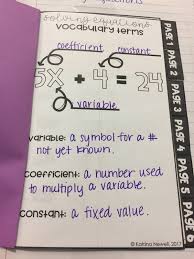 solving equations
vocabulary terms
coefficient constant
5X + 4 = 24
variable
variable: a symbol for a #
not yet known.
coefficient: a number used
to multiply a variable.
constant: a fixed value.
PAGE 1
PAGE 2
PAGE 3
PAGE 4
PAGE 5
PAGE 6
© Katrina Newell, 2017